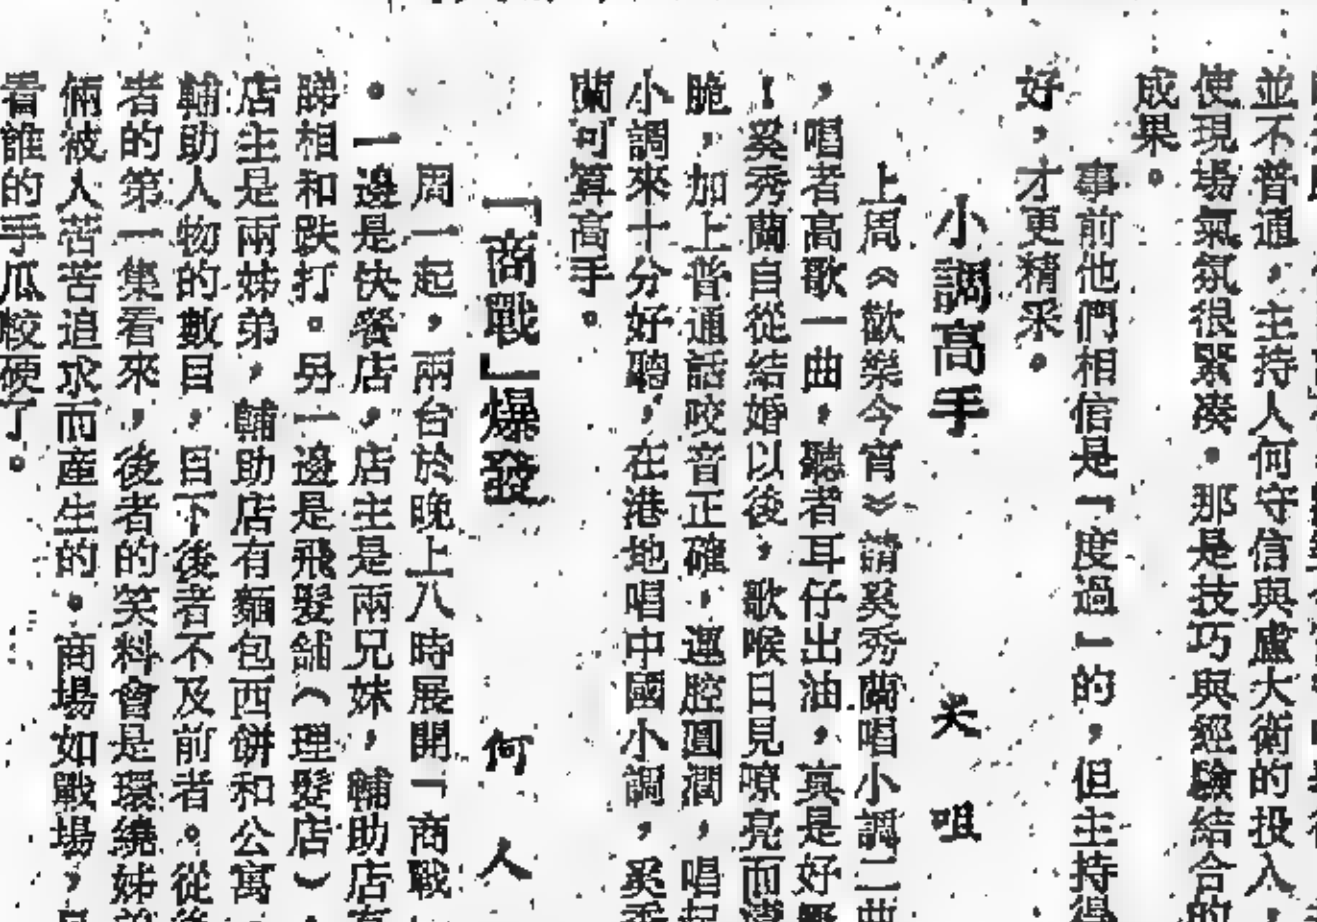 並不普通,主持人何守信與盧大衛的投入,
使現場氣氛很緊凑。那是技巧與經驗結合的
成果。
事前他們相信是「度過」的,但主持得
好,才更精采。
小調高手
上周《歡樂今宵》請奚秀蘭唱小調二曲
,唱者高歌一曲,聽者耳仔出油,真是好
!奚秀蘭自從結婚以後,歌喉日見嘹亮而
脆,加上普通話咬音正確,運腔圓潤,唱起
小調來十分好聽,在港地唱中國小調,奚秀
蘭可算高手。
「商戰」爆發
何人
周一起,兩台於晚上八時展開「商戰
。一邊是快餐店,店主是兩兄妹,輔助店有
睇相和跌打。另一邊是飛髮舖(理髮店),
店主是兩姊弟,輔助店有麵包西餅和公寓。
輔助人物的數目,目下後者不及前者。從
者的第一集看來,後者的笑料會是環繞姊
倆被人苦苦追求而產生的。商場如戰場,
看誰的手瓜較硬了。